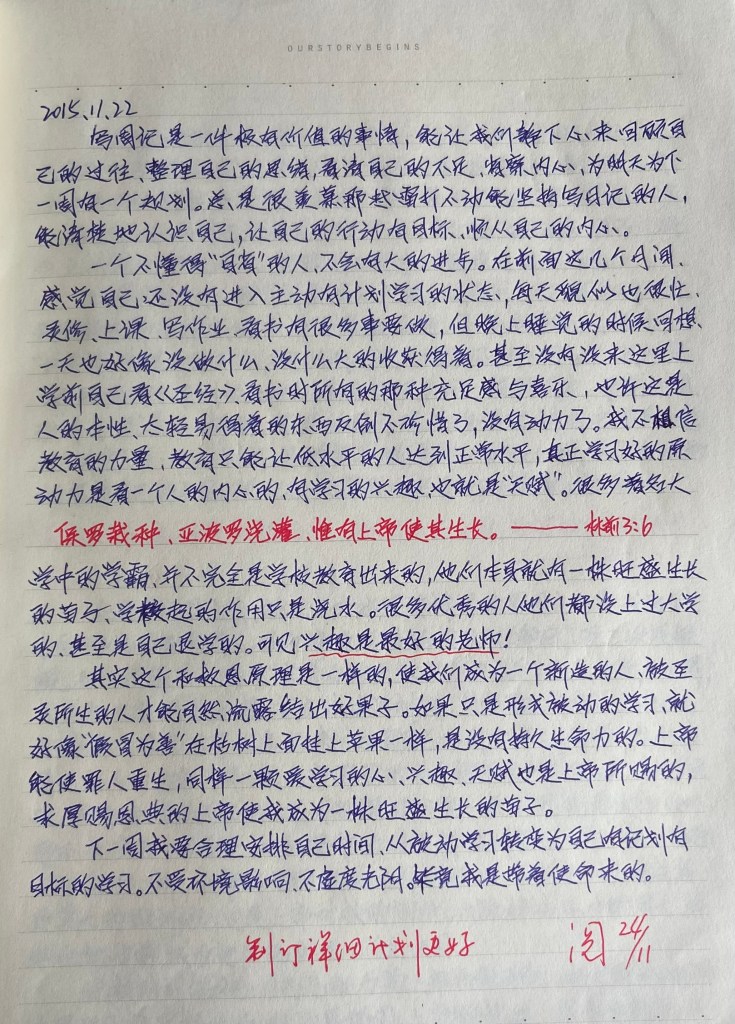 OURSTORYBEGINS
2015.11.22
写周记是一件极有价值的事情，能让我们静下心来回顾自
己的过往、整理自己的思绪，看清自己的不足，省察内心、为明天为下
一周有一个规划。总是很羡慕那些雷打不动能坚持写日记的人，
能清楚地认识自己，让自己的行动有目标、顺从自己的内心。
一个不懂得“自省”的人、不会有大的进步。在前面这几个月间、
感觉自己还没有进入主动有计划学习的状态，每天貌似也很忙、
灵修、上课、写作业、看书有很多事要做，但晚上睡觉的时候回想、
一天也好像没做什么、没什么大的收获得着。甚至没有没来这里上
学前自己看《圣经》、看书时所有的那种充足感与喜乐，也许这是
人的本性、太轻易得着的东西反倒不珍惜了，没有动力了。我不相信
教育的力量、教育只能让低水平的人达到正常水平，真正学习好的原
动力是看一个人的内心的、有学习的兴趣、也就是“天赋”。很多著名大
保罗栽种、亚波罗浇灌、惟有上帝使其生长。——林前3:6
学中的学霸、并不完全是学校教育出来的，他们本身就有一株旺盛生长
的苗子、学校起的作用只是浇水。很多优秀的人他们都没上过大学
的、甚至是自己退学的。可见兴趣是最好的老师！
其实这个和救恩原理是一样的，使我们成为一个新造的人、被圣
灵所生的人才能自然流露结出好果子。如果只是形式被动的学习、就
好像“假冒为善”在枯树上面挂上苹果一样，是没有持久生命力的。上帝
能使罪人重生，同样一颗爱学习的心、兴趣、天赋也是上帝所赐的，
求厚赐恩典的上帝使我成为一株旺盛生长的苗子。
下一周我要合理安排自己时间、从被动学习转变为自己有记划有
目标的学习。不受环境影响、不虚度光阴。毕竟我是带着使命来的。
制订详细计划更好
阅 24/11